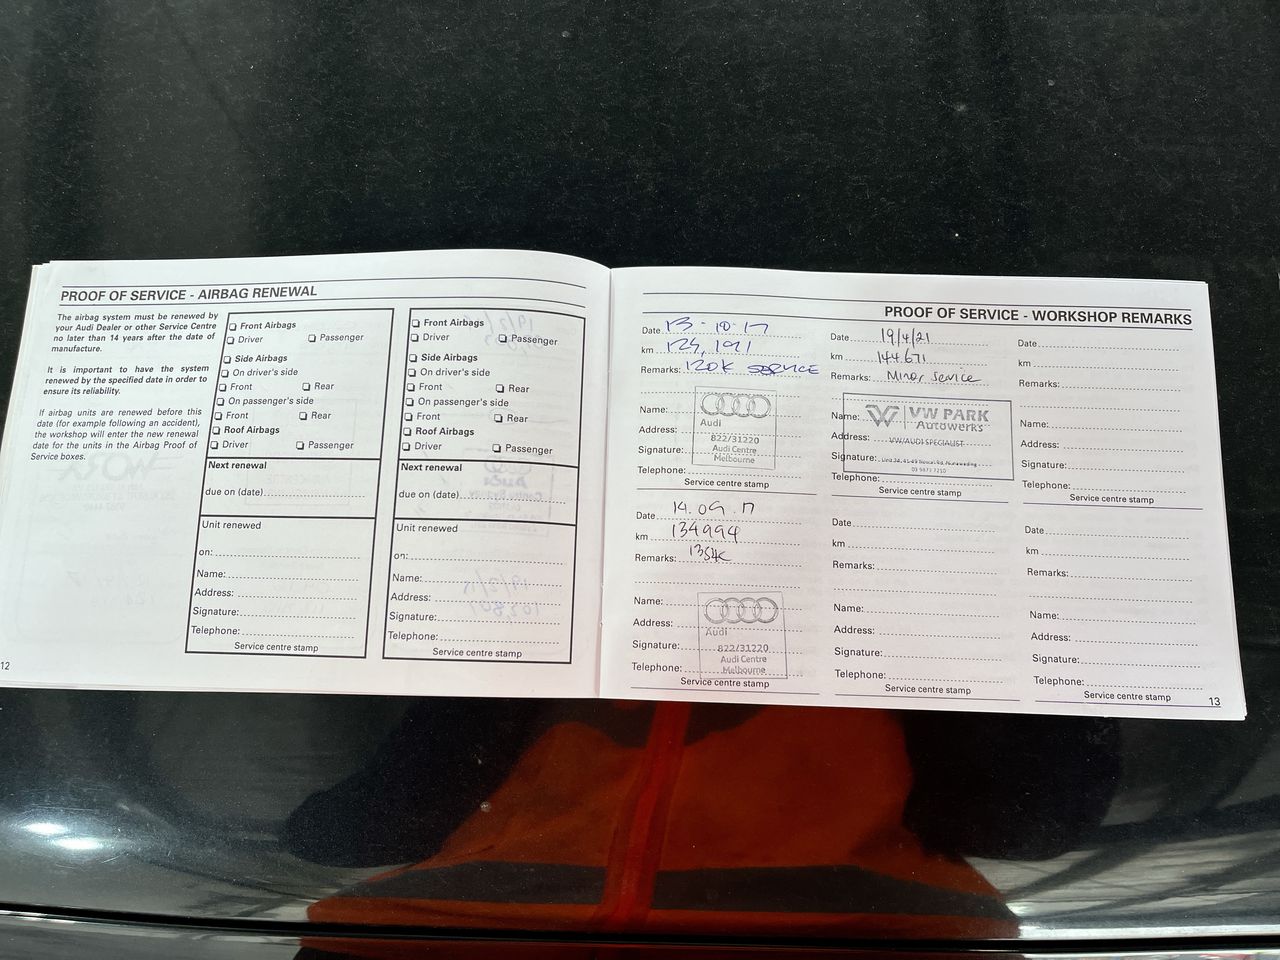 PROOF OF SERVICE - AIRBAG RENEWAL
The airbag system must be renewed by
your Audi Dealer or other Service Centre
no later than 14 years after the date of
manufacture.
It is important to have the system
renewed by the specified date in order to
ensure its reliability.
If airbag units are renewed before this
date (for example following an accident),
the workshop will enter the new renewal
date for the units in the Airbag Proof of
Service boxes.
Front Airbags
Driver Passenger
Side Airbags
On driver's side
Front Rear
On passenger's side
Front Rear
Roof Airbags
Driver Passenger
Next renewal
due on (date)
Unit renewed
on:
Name:
Address:
Signature:
Telephone:
Service centre stamp
Front Airbags
Driver Passenger
Side Airbags
On driver's side
Front Rear
On passenger's side
Front Rear
Roof Airbags
Driver Passenger
Next renewal
due on (date)
Unit renewed
on:
Name:
Address:
Signature:
Telephone:
Service centre stamp
12
PROOF OF SERVICE - WORKSHOP REMARKS
Date 13-10-17
km 125,191
Remarks: 120K SERVICE
Name:
Address:
Signature:
Telephone:
Audi
822/31220
Audi Centre
Melbourne
Service centre stamp
Date 19/4/21
km 144.671
Remarks: Minor Service
Name:
Address:
Signature:
Telephone:
VW PARK
Autowerks
VW/AUDI SPECIALIST
Service centre stamp
Date
km
Remarks:
Name:
Address:
Signature:
Telephone:
Service centre stamp
Date 19.09.17
km 134994
Remarks: 135K
Name:
Address:
Signature:
Telephone:
Audi
822/31220
Audi Centre
Melbourne
Service centre stamp
Date
km
Remarks:
Name:
Address:
Signature:
Telephone:
Service centre stamp
Date
km
Remarks:
Name:
Address:
Signature:
Telephone:
Service centre stamp
13